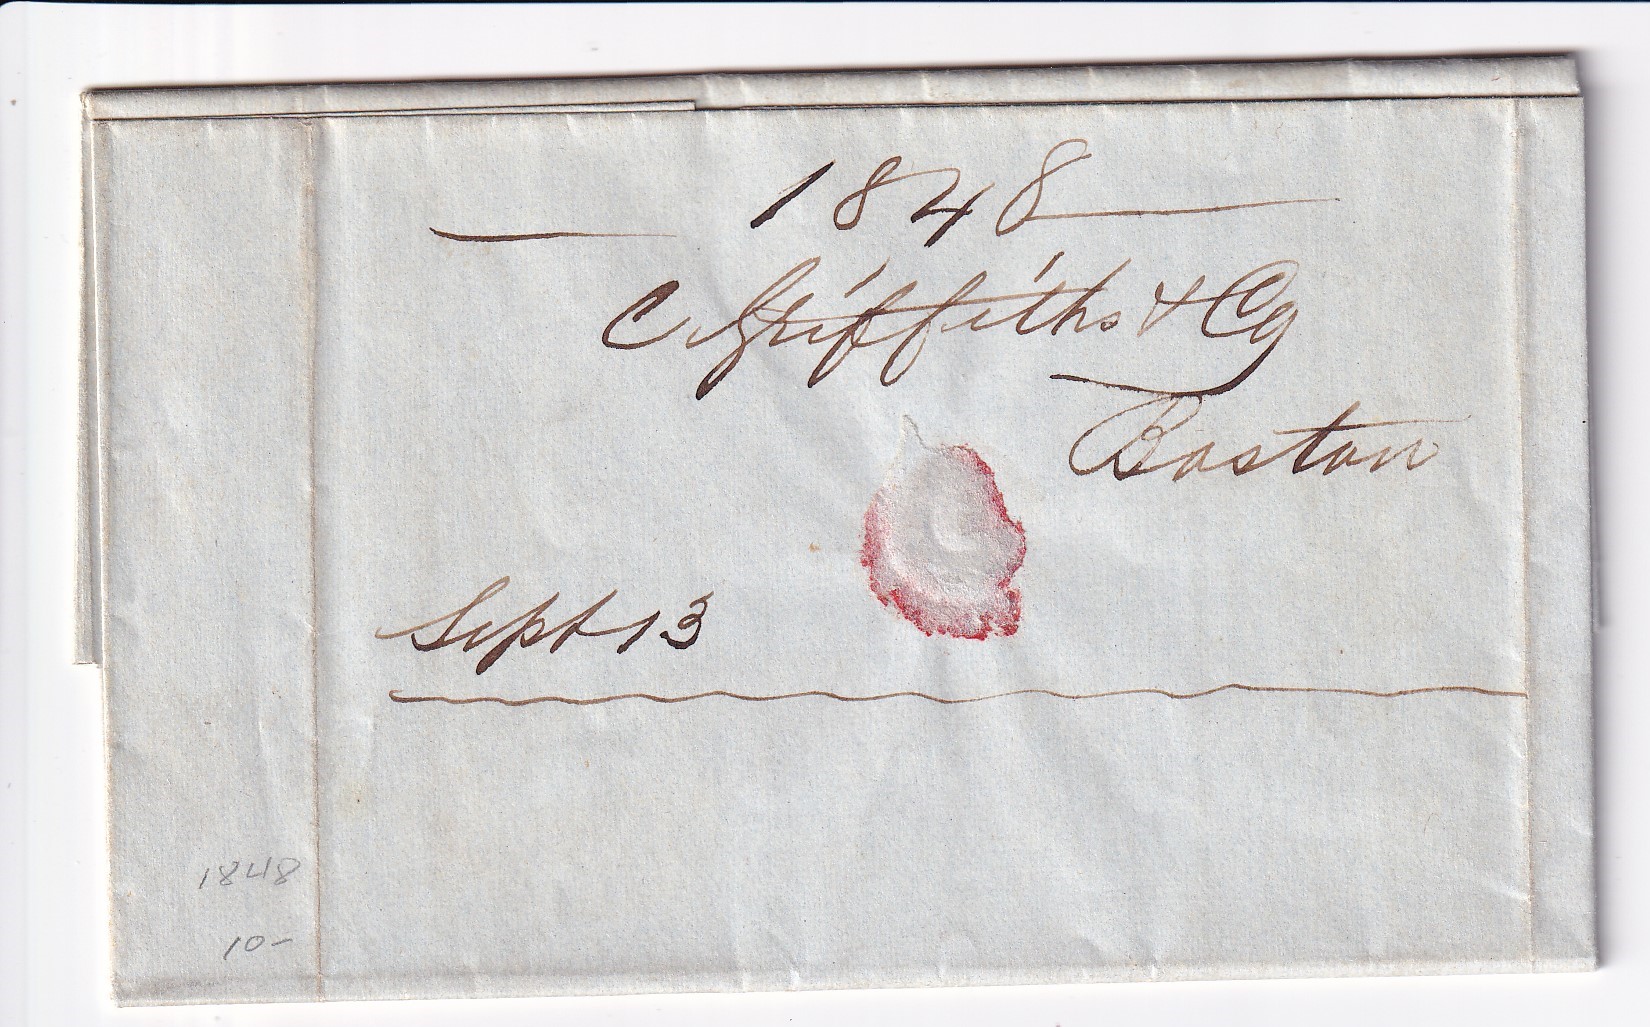 1848
C Griffiths & Co
Boston
Sept 13
1848
10-